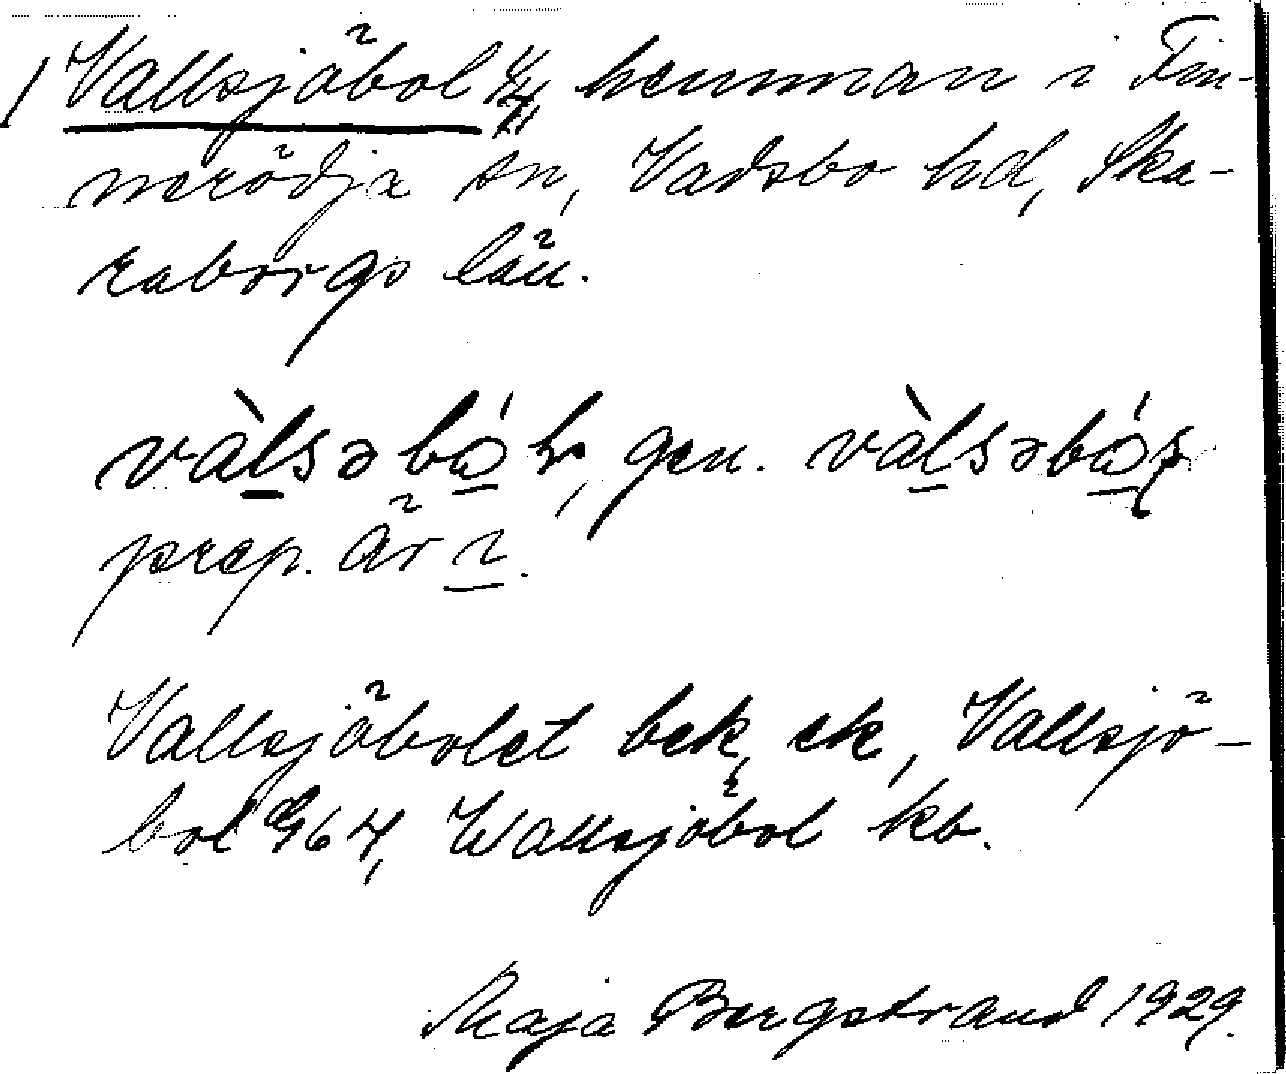 1 Vallsjöbol hemman i Fin-
nerödja sn, Vadsbo hd, Ska-
raborgs län.
vàlsəbóɽ, gen. vàlsəbóʂ
prep. är i.
Vallsjöbolet bek, ek, Vallsjö-
bol G64, Wallsjöbol kb.
Maja Bergstrand 1929.